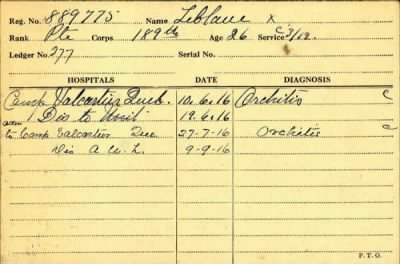 Reg. No. 889775 Name Leblanc X
Rank Pte Corps 189th Age 26 Service 3/12.
Ledger No. 277 Serial No.
HOSPITALS DATE DIAGNOSIS
Camp Valcartier Queb. 10.6.16 Orchitis C
Dis to Unit 19.6.16
adm to Camp Valcartier Que 27-7-16 Orchitis C
Dis A.W.L. 9-9-16
P.T.O.